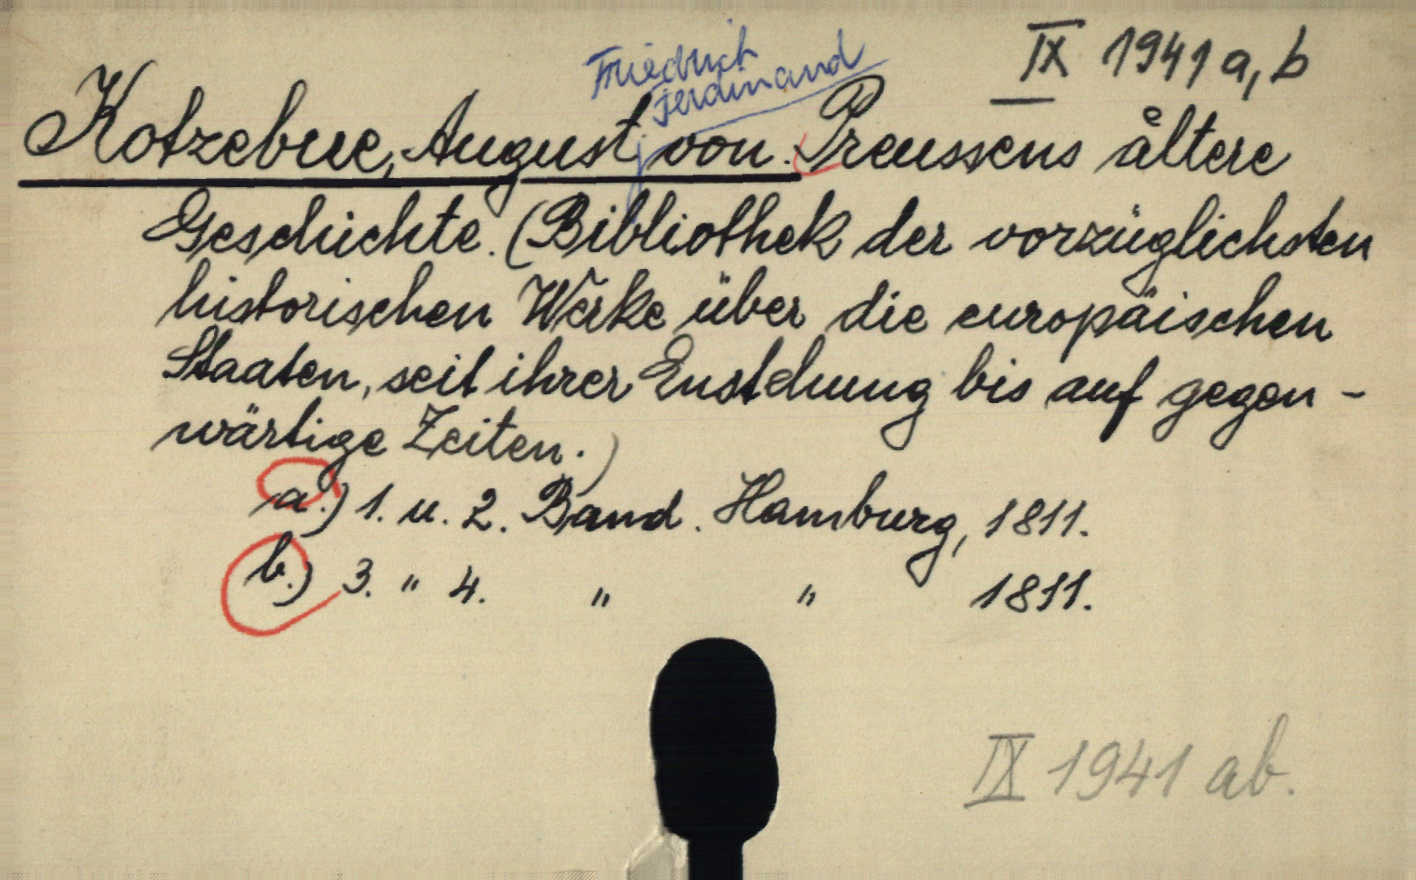 IX 1941 a, b
Friedrich
Ferdinand
Kotzebue, August von. Preussens ältere
Geschichte. (Bibliothek der vorzüglichsten
historischen Werke über die europäischen
Staaten, seit ihrer Enstehung bis auf gegen-
wärtige Zeiten.)
a.) 1. u. 2. Band. Hamburg, 1811.
b.) 3. " 4. " " 1811.
IX 1941 ab.